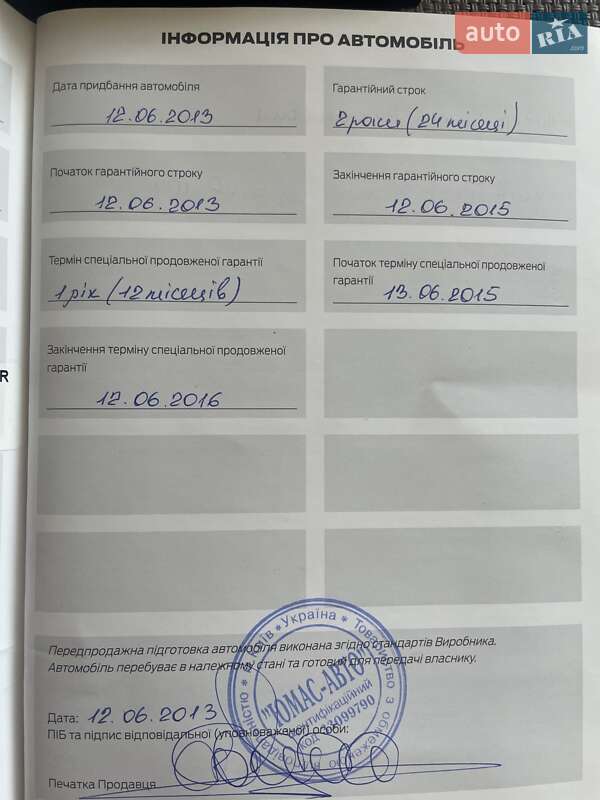 ІНФОРМАЦІЯ ПРО АВТОМОБІЛЬ
auto RIA.com
Дата придбання автомобіля
12.06.2013
Гарантійний строк
2 роки (24 місяці)
Початок гарантійного строку
12.06.2013
Закінчення гарантійного строку
12.06.2015
Термін спеціальної продовженої гарантії
1 рік (12 місяців)
Початок терміну спеціальної продовженої
гарантії
13.06.2015
R
Закінчення терміну спеціальної продовженої
гарантії
12.06.2016
Передпродажна підготовка автомобіля виконана згідно стандартів Виробника.
Автомобіль перебуває в належному стані та готовий для передачі власнику.
Дата: 12.06.2013
ПІБ та підпис відповідальної (уповноваженої) особи:
Печатка Продавця
Україна * Товариство з обмеженою
"ЮМАС-АВТО"